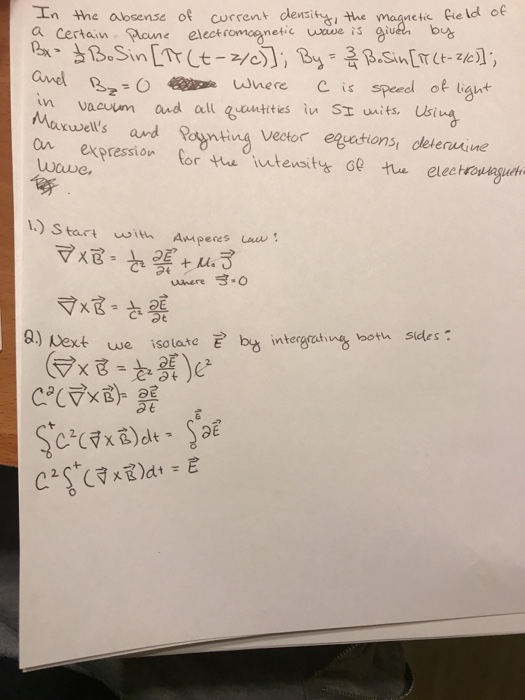 In the absense of current density, the magnetic field of
a certain plane electromagnetic wave is given by
Bx = 1/2 B₀ Sin[π(t - z/c)]; By = 3/4 B₀ Sin[π(t - z/c)];
and Bz = 0 where c is speed of light
in vacuum and all quantities in SI units. Using
Maxwell's and Poynting Vector equations, determine
an expression for the intensity of the electromagneti
wave.
1.) Start with Amperes Law:
∇⃗ x B⃗ = 1/c² ∂E⃗/∂t + μ₀ J⃗
where J⃗ = 0
∇⃗ x B⃗ = 1/c² ∂E⃗/∂t
2.) Next we isolate E⃗ by intergrating both sides:
(∇⃗ x B⃗ = 1/c² ∂E⃗/∂t) c²
C²(∇⃗ x B⃗) = ∂E⃗/∂t
∫₀ᵗ C²(∇⃗ x B⃗)dt = ∫₀^E⃗ ∂E⃗
C² ∫₀ᵗ (∇⃗ x B⃗)dt = E⃗